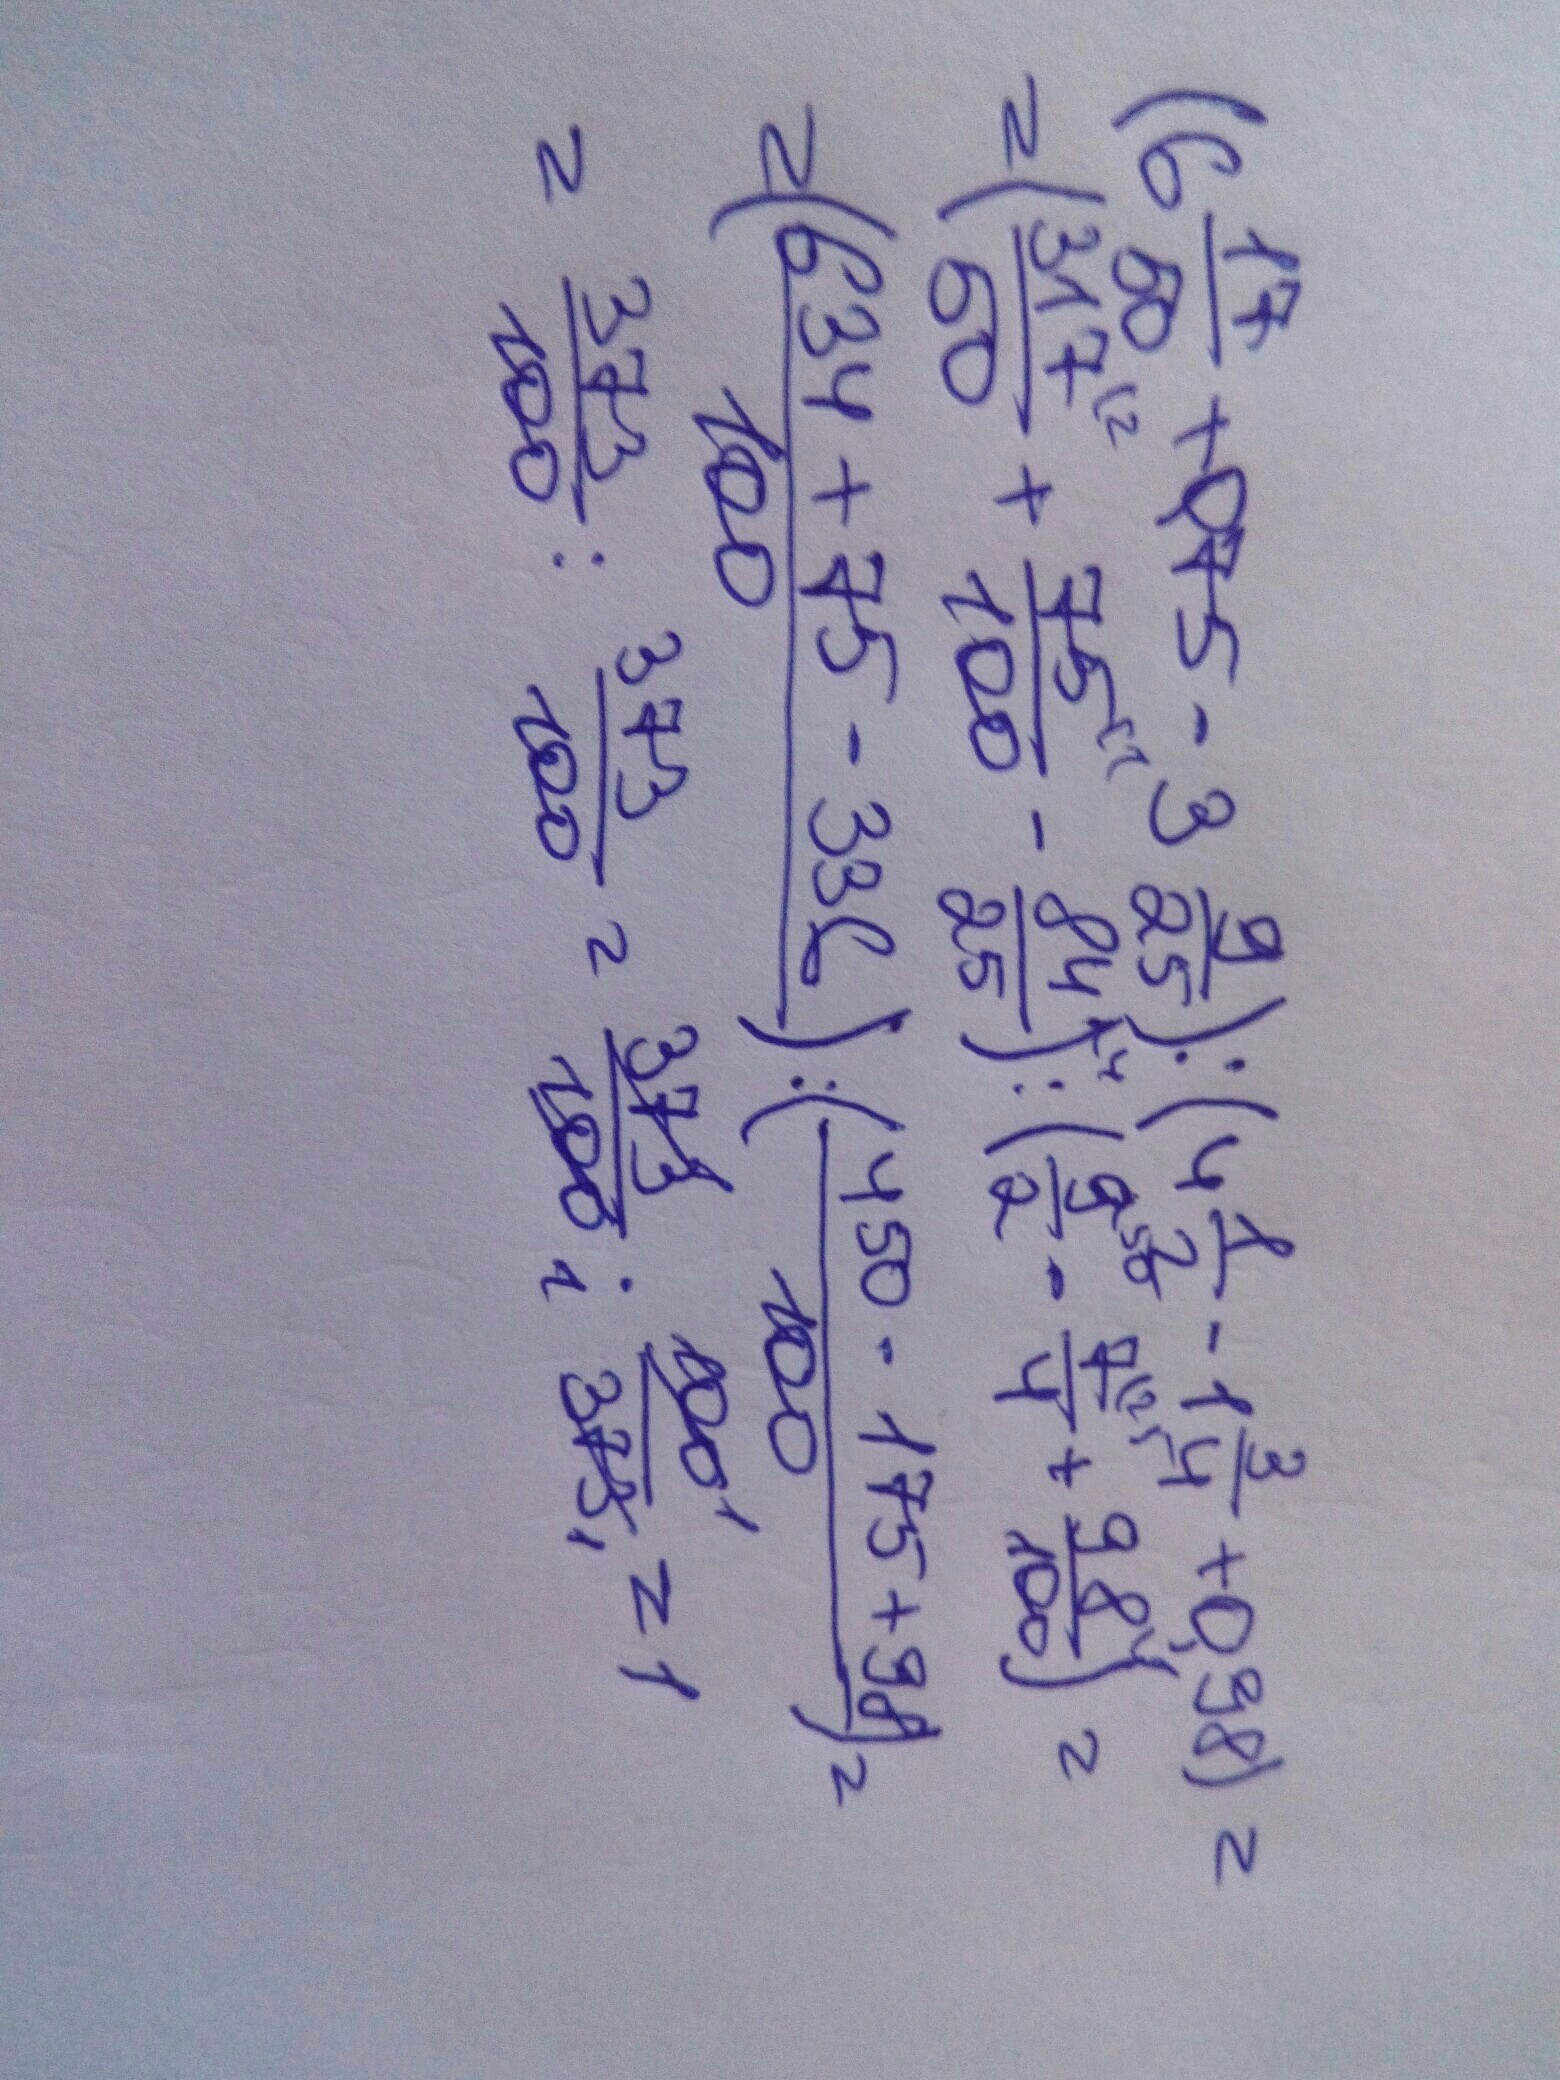 (6 17/50 + 0,75 - 3 9/25) : (4 1/2 - 1 3/4 + 0,98) =
= (317/50 + 75/100 - 84/25) : (9/2 - 7/4 + 98/100) =
= (634 + 75 - 336 / 100) : (450 - 175 + 98 / 100) =
= 373/100 : 373/100 = 373/100 : 100/373 = 1